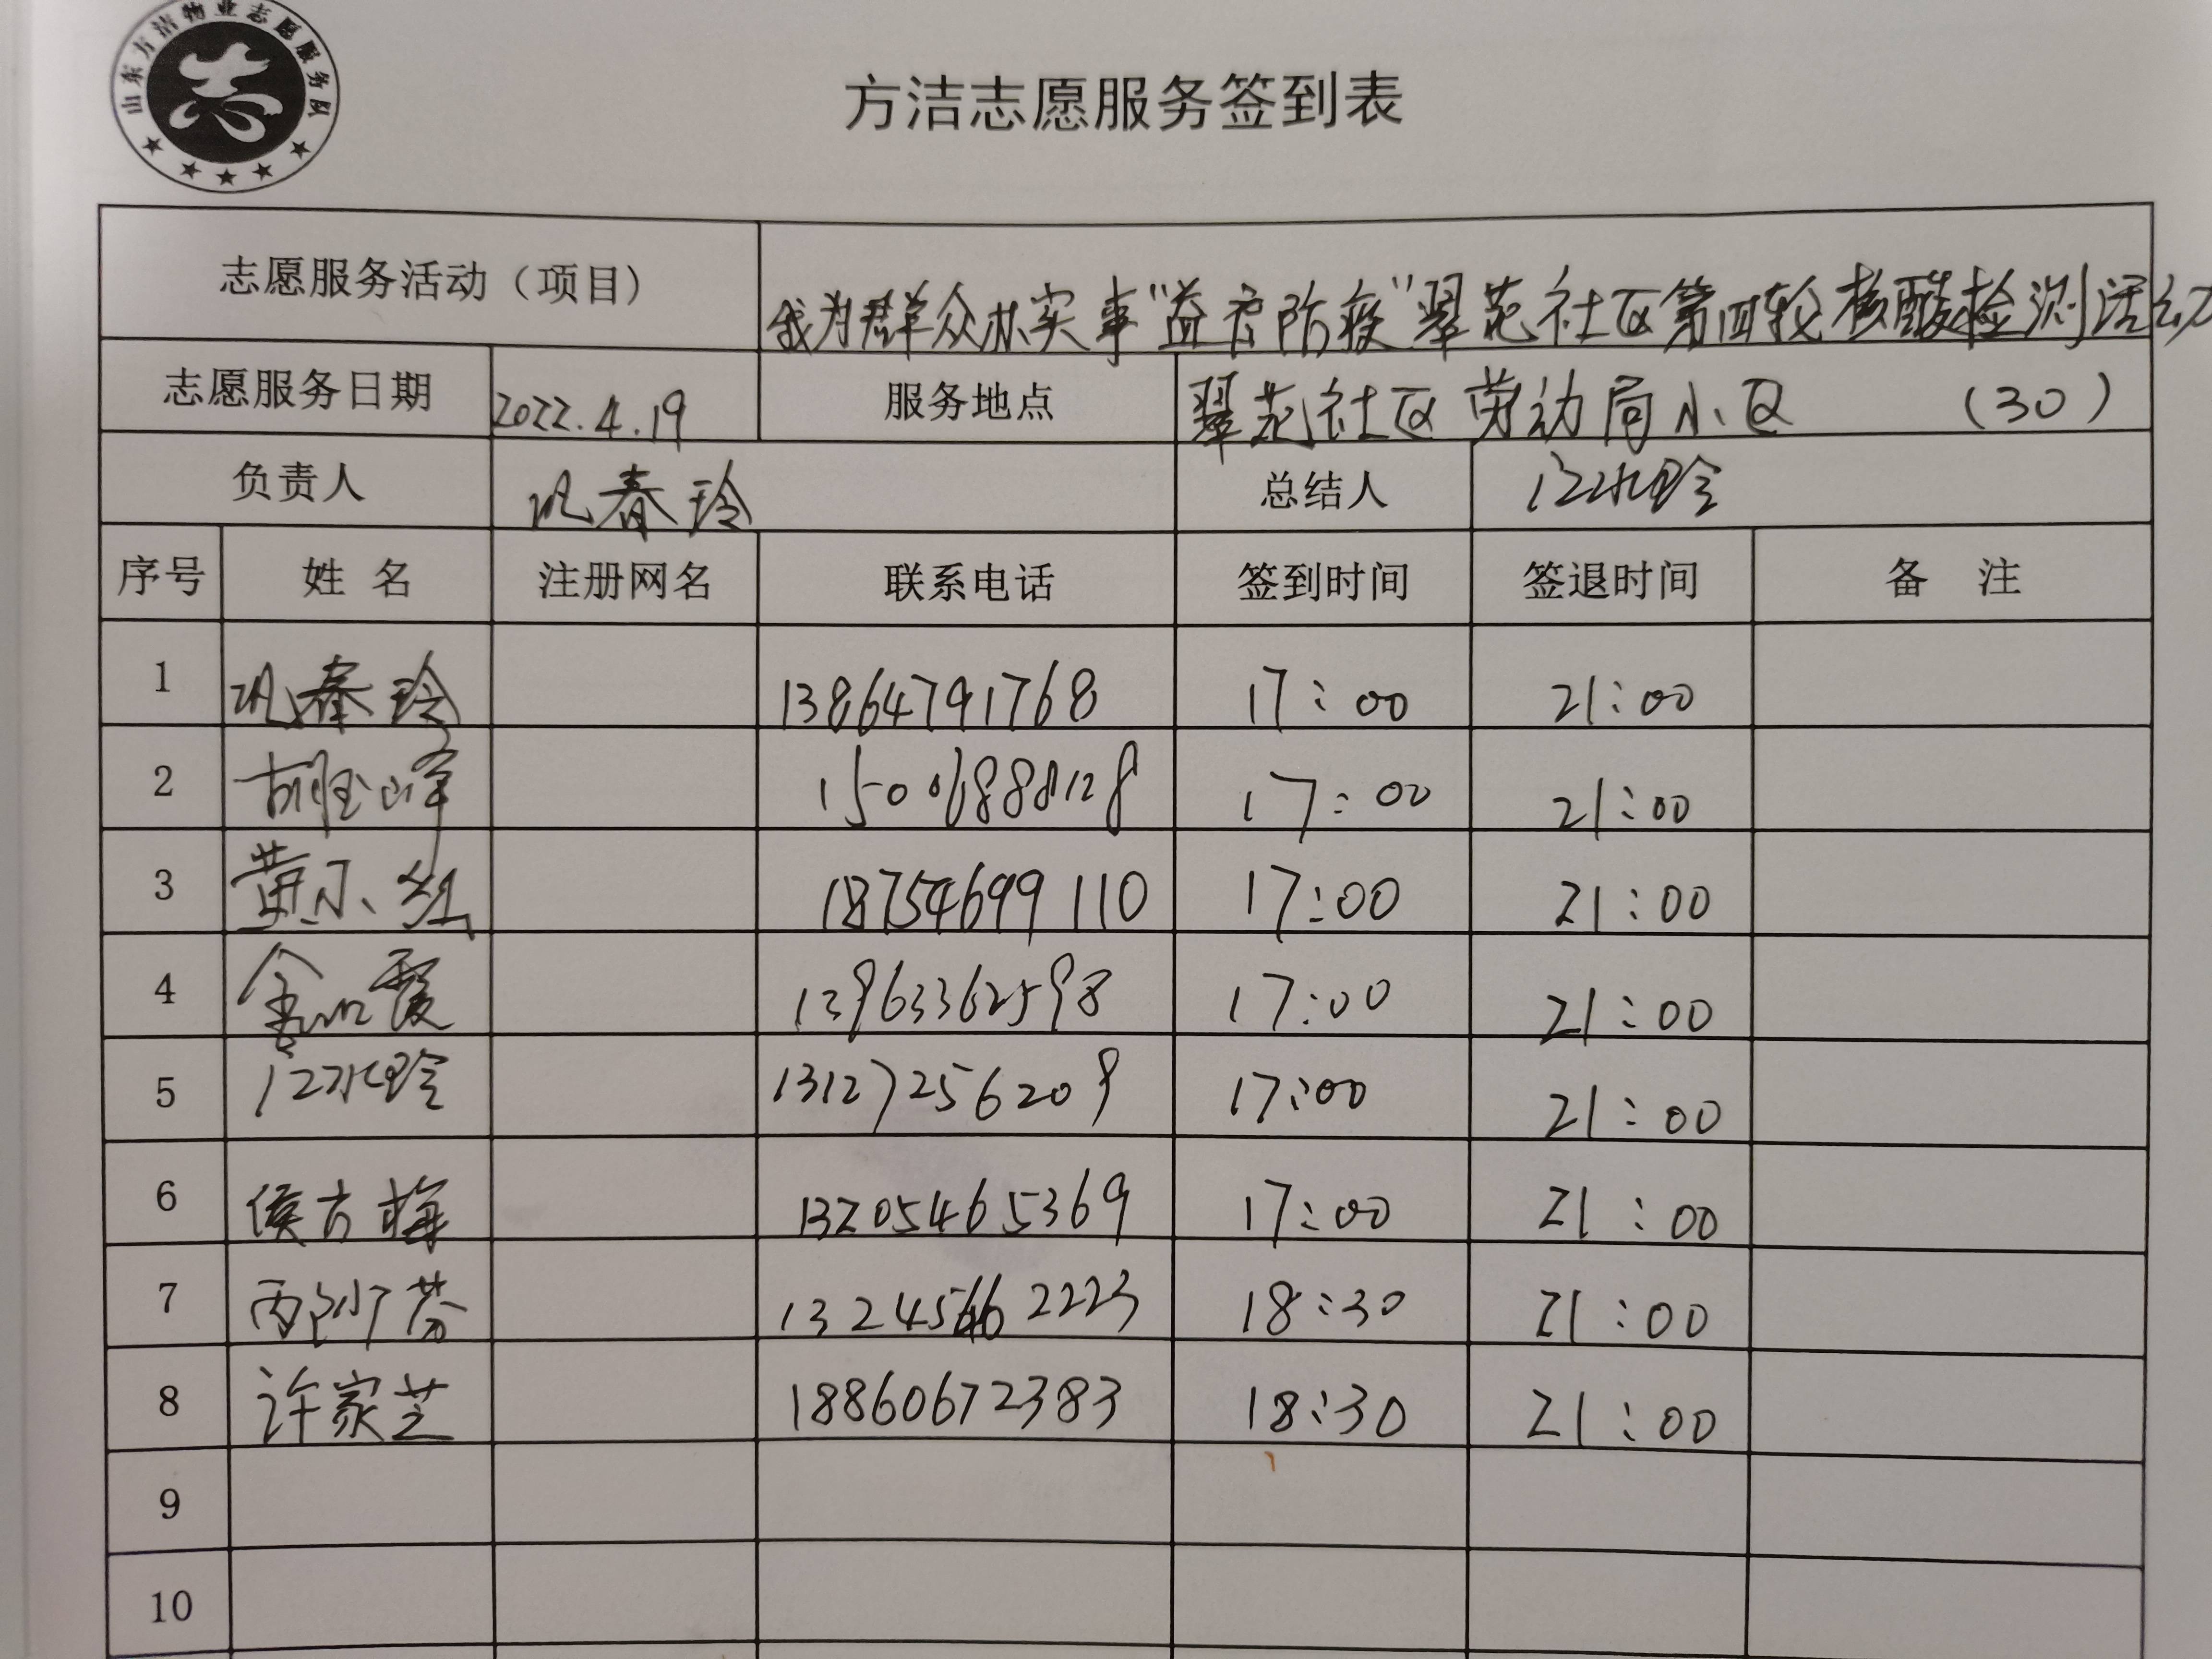 山东方洁物业志愿服务队
方洁志愿服务签到表
志愿服务活动（项目） 我为群众办实事“益启防疫”翠苑社区第四轮核酸检测活动
志愿服务日期 2022.4.19 服务地点 翠苑社区劳动局小区 （30）
负责人 巩春玲 总结人
序号 姓 名 注册网名 联系电话 签到时间 签退时间 备 注
1 巩春玲 13864791768 17：00 21：00
2 17：00 21：00
3 黄小红 18754699110 17：00 21：00
4 13963362598 17：00 21：00
5 13127256209 17：00 21：00
6 侯古梅 13205465369 17：00 21：00
7 18：30 21：00
8 许家芝 18860672383 18：30 21：00
9
10